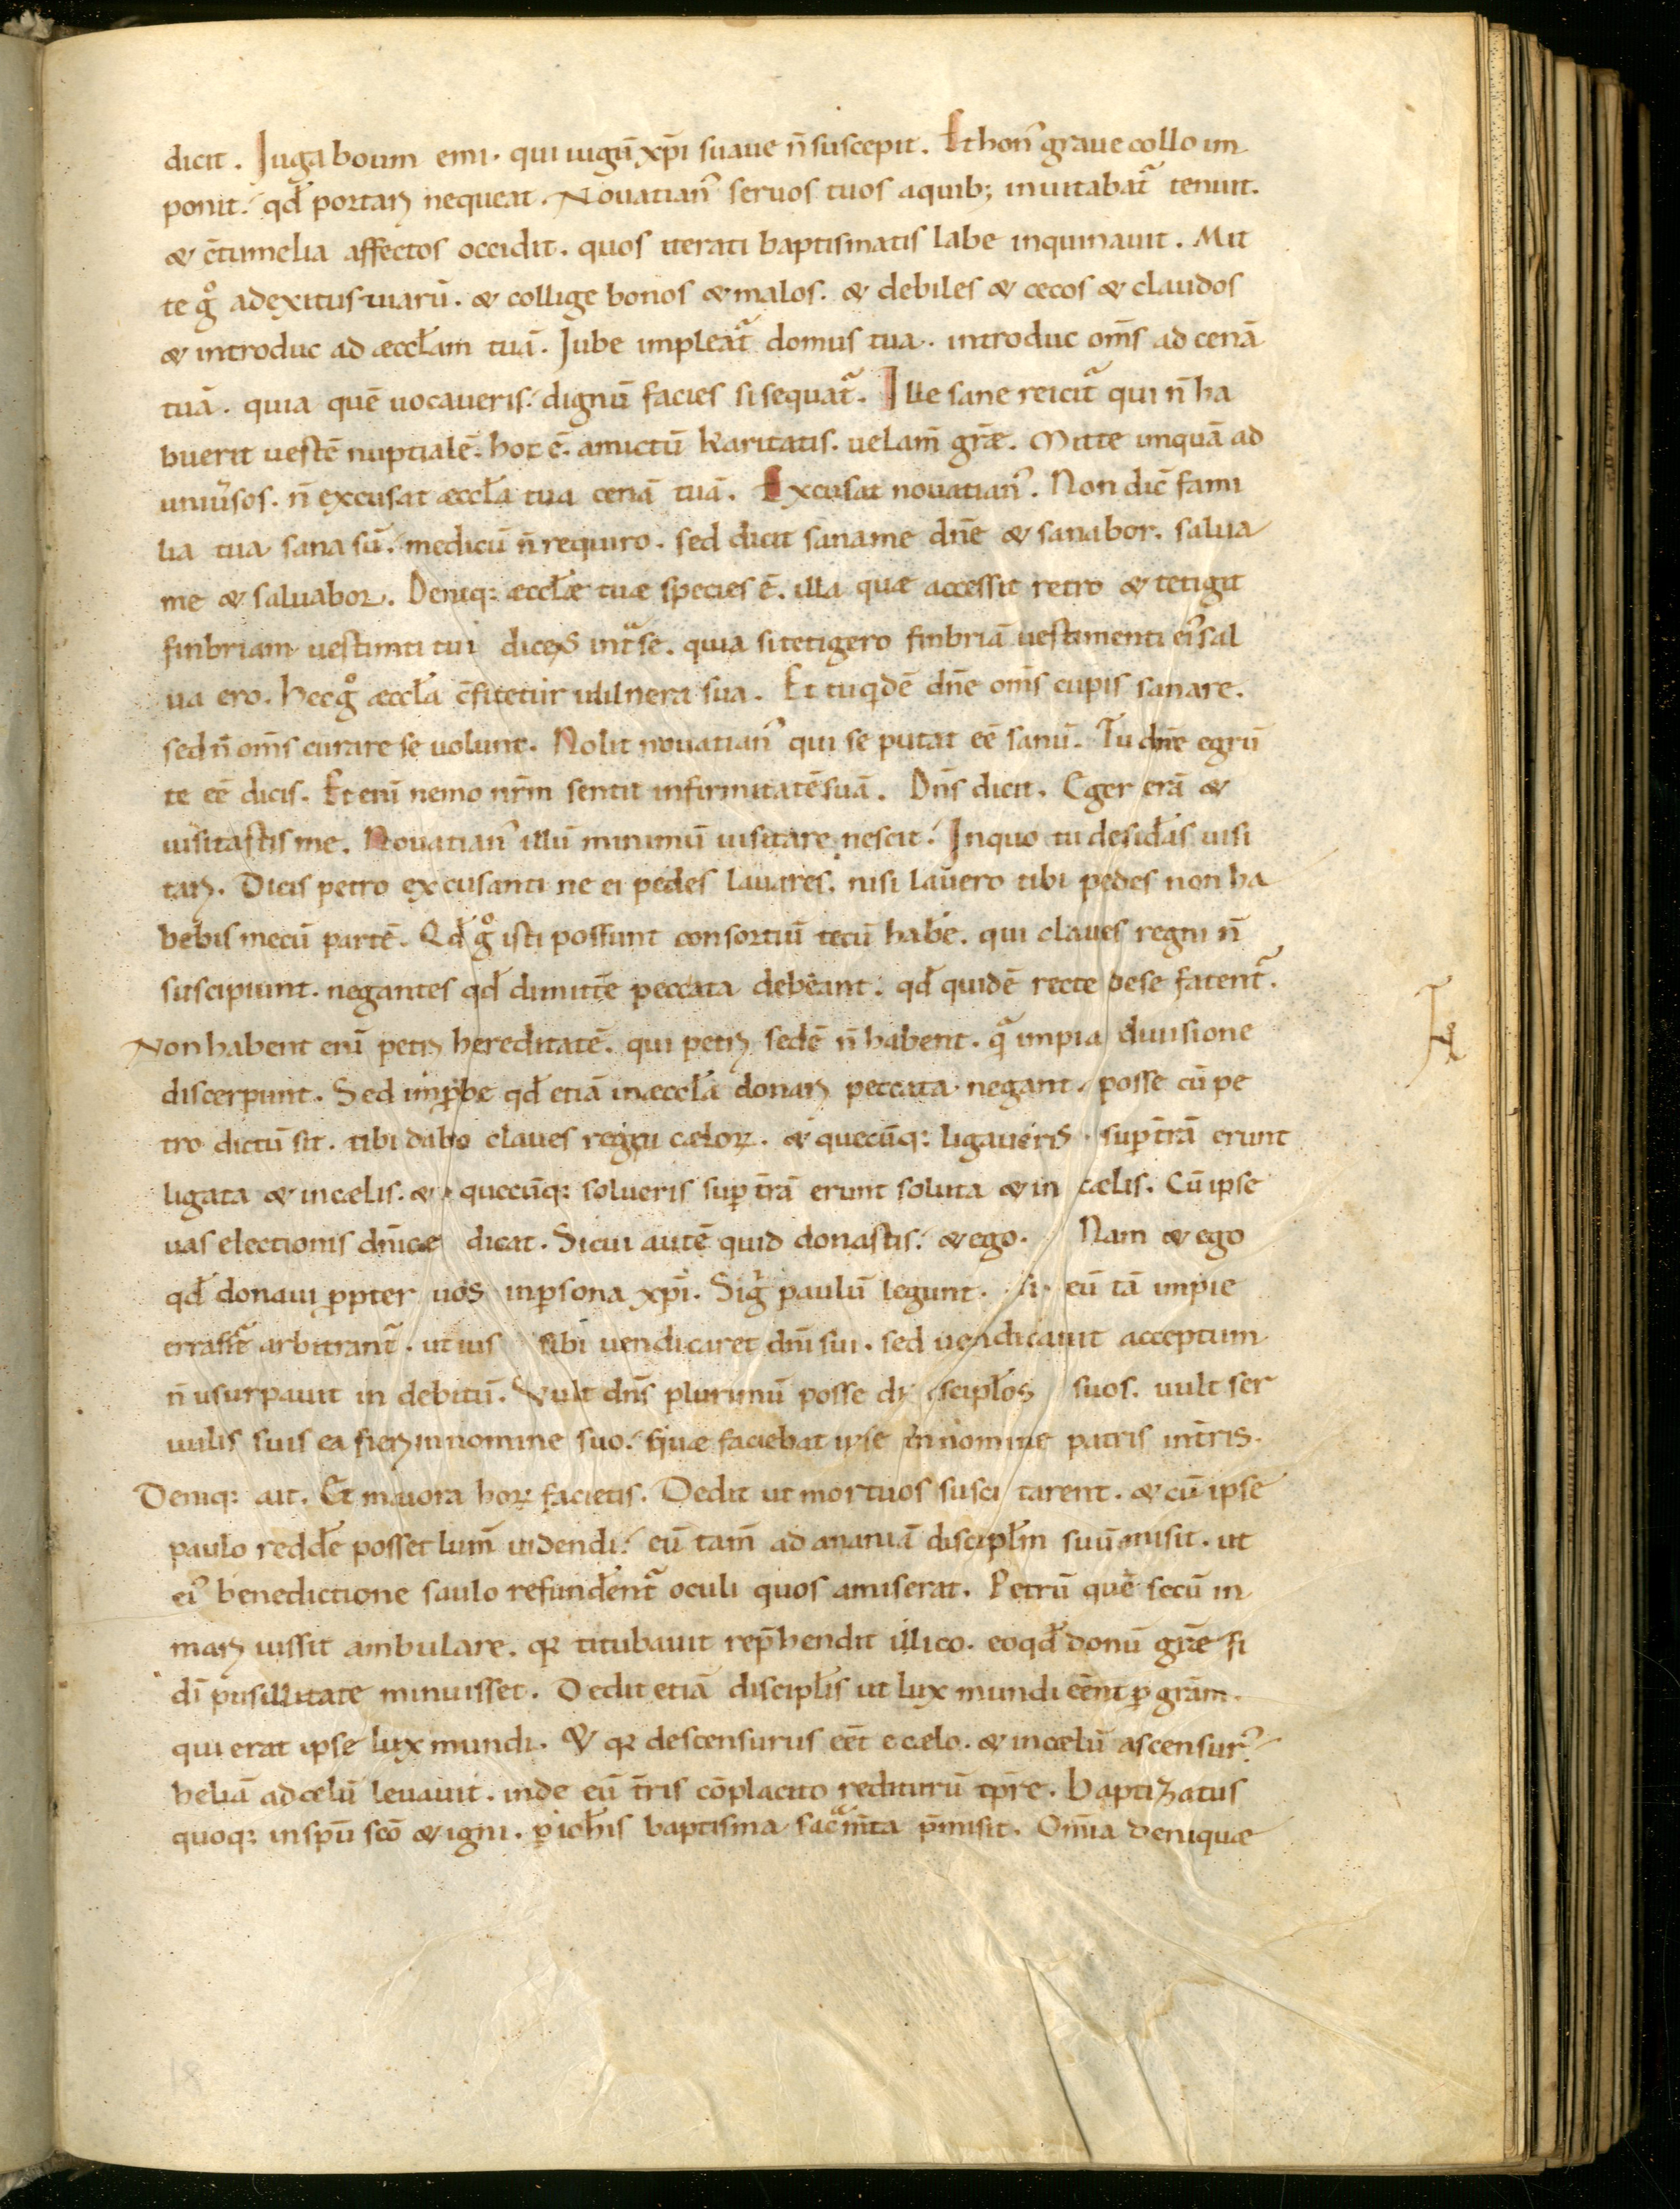 dicit. Juga boum emi. qui iugũ xp̃i suaue ñ suscepit. Et hon᾿ graue collo im
ponit. qđ portar̃ nequeat. Nouatian᾿ seruos tuos a quib; inuitabat᷑ tenuit.
& c̃tumelia affectos occidit. quos iterati baptismatis labe inquinauit. Mit
te gͦ ad exitus uiarũ. & collige bonos & malos. & debiles & cecos & claudos
& introduc ad æccłam tuã. Jube impleat᷑ domus tua. introduc om̃s ad cenã
tuã. quia quẽ uocaueris. dignũ facies si sequat᷑. Ille sane reicit᷑ qui ñ ha
buerit uestẽ nuptialẽ. hoc ẽ. amictũ karitatis. uelam̃ gr̃æ. Mitte unquã ad
uniũsos. ñ excusat æccła tua cenã tuã. Excusat nouatian᾿. Non dic̃ fami
lia tua sana sũ. medicũ ñ requiro. sed dicit sana me dñe & sanabor. salua
me & saluabor. Deniq: æccłæ tuæ species ẽ. illa quæ accessit retro & tetigit
finbriam uestimti tui dicens int᷑ se. quia si tetigero finbriã uestimenti ei᾿ sal
ua ero. hec gͦ æccła c̃fitetur uulnera sua. Et tu qdẽ dñe om̃s cupis sanare.
sed ñ om̃s curare se uolunt. Nolit nouatian᾿ qui se putat eẽ sanũ. Tu dñe egrũ
te eẽ dicis. Et eni᷑ nemo nr̃m sentit infirmitatẽ suã. Dñs dicit. Eger erã &
uisitastis me. Nouatian᾿ illũ minimũ uisitare nescit. In quo tu desiđas uisi
tar̃. Dicis petro excusanti ne ei pedes lauares. nisi lauero tibi pedes non ha
bebis mecũ partẽ. Qđ gͦ isti possunt consortiũ tecũ habẽ. qui claues regni ñ
suscipiunt. negantes qđ dimittẽ peccata debeant. qđ quidẽ recte de se fatent᷑.
Non habent enĩ petr̃ hereditatẽ. qui petr̃ sedẽ ñ habent. q᷑ impia diuisione
discerpunt. Sed inp̃be qđ etiã in æccła donar̃ peccata negant. posse cũ pe
tro dictũ sit. tibi dabo claues regni cæloꝝ. & quecũq: ligaueris. sup tr̃ã erunt
ligata & in cælis. & quecũq: solueris sup tr̃ã erunt soluta & in cælis. Cũ ipse
uas electionis dñicæ dicat. Si cui autẽ quid donastis. & ego. Nam & ego
qđ donaui ꝓpter uos in ꝑsona xp̃i. Si gͥ paulũ legunt. si eũ tã impie
errasse᷑ arbitrant᷑. ut ius sibi uendicaret dñi sui. sed uendicauit acceptum
ñ usurpauit in debitũ. Vult dñs plurimũ posse discipłos suos. uult ser
uulis suis ea fier̃ in nomine suo. quæ faciebat ipse in nomine patris in tr̃is.
Deniq: ait. Et maiora hoꝝ facietis. Dedit ut mortuos susci tarent. & cũ ipse
paulo reddẽ posset lum̃ uidendi. eũ tam̃ ad ananiã discipłm suũ misit. ut
ei᾿ benedictione saulo refundẽnt᷑ oculi quos amiserat. Petrũ quẽ secũ in
mar̃ iussit ambulare. qꝛ titubauit rep̃hendit illico. eo qđ donũ gr̃e fi
dĩ pusillitate minuisset. Dedit etiã discipłis ut lux mundi eẽnt ꝑ gr̃am.
qui erat ipse lux mundi. & qꝛ descensurus eẽt e cælo. & in cælũ ascensur᾿
heliã ad celũ leuauit. inde eũ tr̃is cõplacito rediturũ tp̃re. baptizatus
quoq: in spũ scõ & igni. ꝑ ioħis baptisma sac᷑m̃ta p̃misit. Om̃ia deniquæ
18